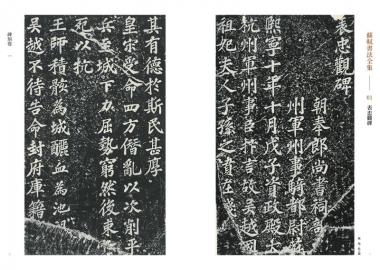 蘇軾書法全集
01
表忠觀碑
表忠觀碑
朝奉郎尚書祠
州軍州事騎都尉
熙寧十年十月戊子資政殿大
杭州軍州事臣抃言故吳越國
祖妃夫人子孫之墳在
其有德於斯民甚厚
皇宋受命四方僭亂以次削平
兵至城下力屈勢窮然後束
死以抗
王師積骸為城釃血為池
吳越不待告命封府庫籍
碑刻卷
一